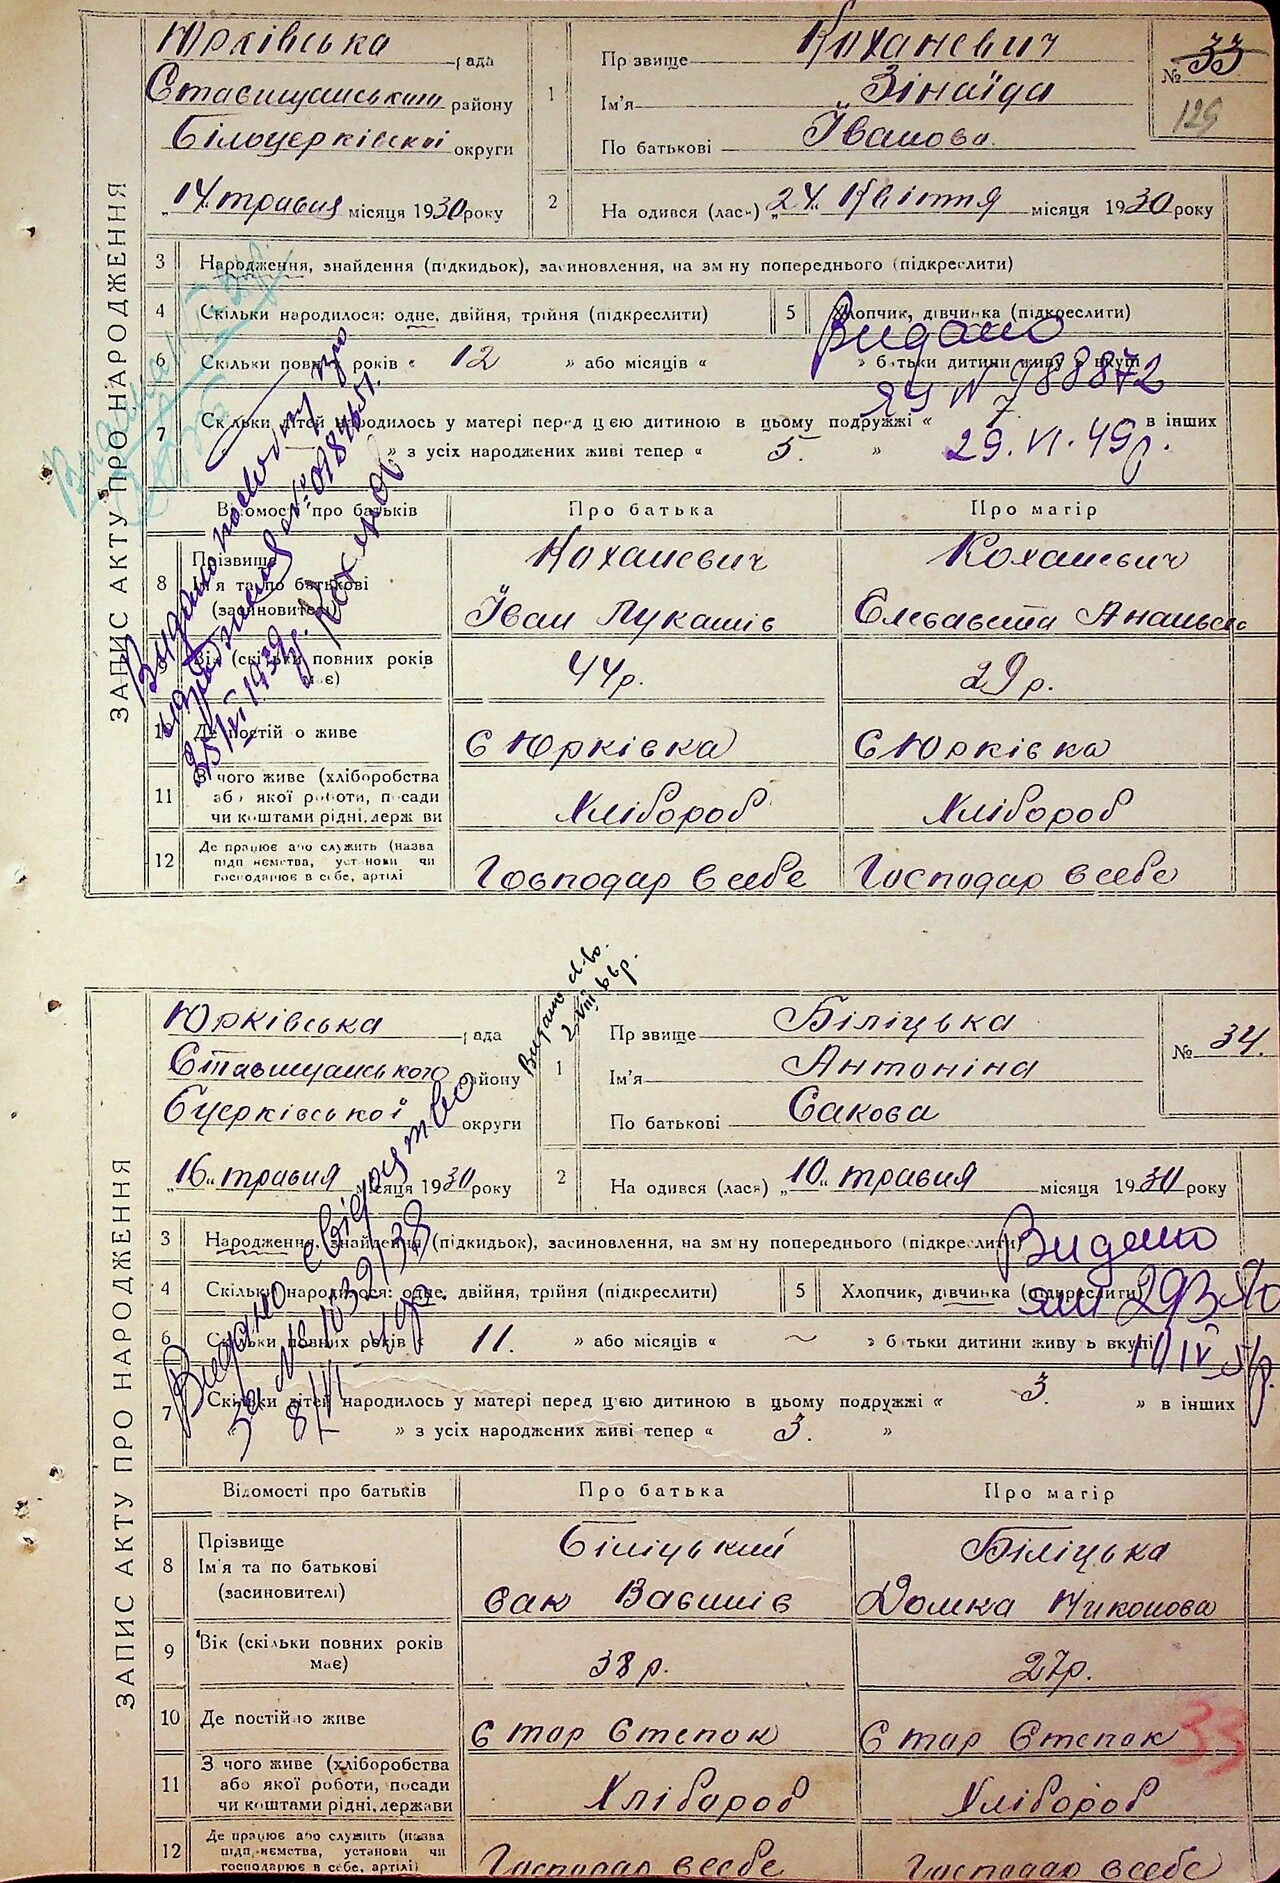 ЗАПИС АКТУ ПРО НАРОДЖЕННЯ
Юрківська рада
Ставищанського району
Білоцерківської округи
"14" травня місяця 1930 року
1 Пр звище Коханевич
Ім'я Зінаїда
По батькові Іванова
№ 33
129
2 На одився (лась) "24" Квітня місяця 1930 року
3 Народження, знайдення (підкидьок), засиновлення, на зм ну попереднього (підкреслити)
4 Скільки народилося: одне, двійня, трійня (підкреслити)
5 Хлопчик, дівчинка (підкреслити)
Видано
6 Скільки повних років « 12 » або місяців « » б тьки дитини живу ь вкупі
ЯЧ № 788872
7 Скільки дітей народилось у матері перед цією дитиною в цьому подружжі « 7 в інших
» з усіх народжених живі тепер « 5. »
29.VI.49р.
Відомості про батьків Про батька Про матір
8 Прізвище Коханевич Коханевич
Ім'я та по батькові
(засиновителі) Іван Лукашів Єлезавета Ананьева
9 Вік (скільки повних років має) 44р. 29р.
10 Де постійно живе С Юрківка С Юрківка
11 З чого живе (хліборобства
або якої роботи, посади
чи коштами рідні, держ ви Хлібороб Хлібороб
12 Де працює або служить (назва
підп иємства, установи чи
господарює в себе, артілі Господар в себе Господар в себе
Видано д-во.
2 VIII 66р.
ЗАПИС АКТУ ПРО НАРОДЖЕННЯ
Юрківська рада
Ставищанського району
Бцерківської округи
"16" травня місяця 1930 року
1 Пр звище Біліцька
Ім'я Антоніна
По батькові Сакова
№ 34.
2 На одився (лася) "10" травня місяця 1930 року
3 Народження, знайдення (підкидьок), засиновлення, на зм ну попереднього (підкреслити)
Видано
4 Скільки народилося: одне, двійня, трійня (підкреслити)
5 Хлопчик, дівчинка (підкреслити)
6 Скільки повних років « 11. » або місяців « ~ » б тьки дитини живу ь вкупі
7 Скільки дітей народилось у матері перед цією дитиною в цьому подружжі « 3. » в інших
» з усіх народжених живі тепер « 3. »
Видано свідоцтво
за № 1032/38
Відомості про батьків Про батька Про матір
8 Прізвище Біліцький Біліцька
Ім'я та по батькові
(засиновителі) Сак Васшів Домка Никонова
9 Вік (скільки повних років
має) 38р. 27р.
10 Де постійно живе С тар Степок С тар Степок
33
11 З чого живе (хліборобства
або якої роботи, посади
чи коштами рідні, держави Хлібороб Хлібороб
12 Де працює або служить (назва
підп иємства, установи чи
господарює в себе, артілі) Господар в себе Господар в себе